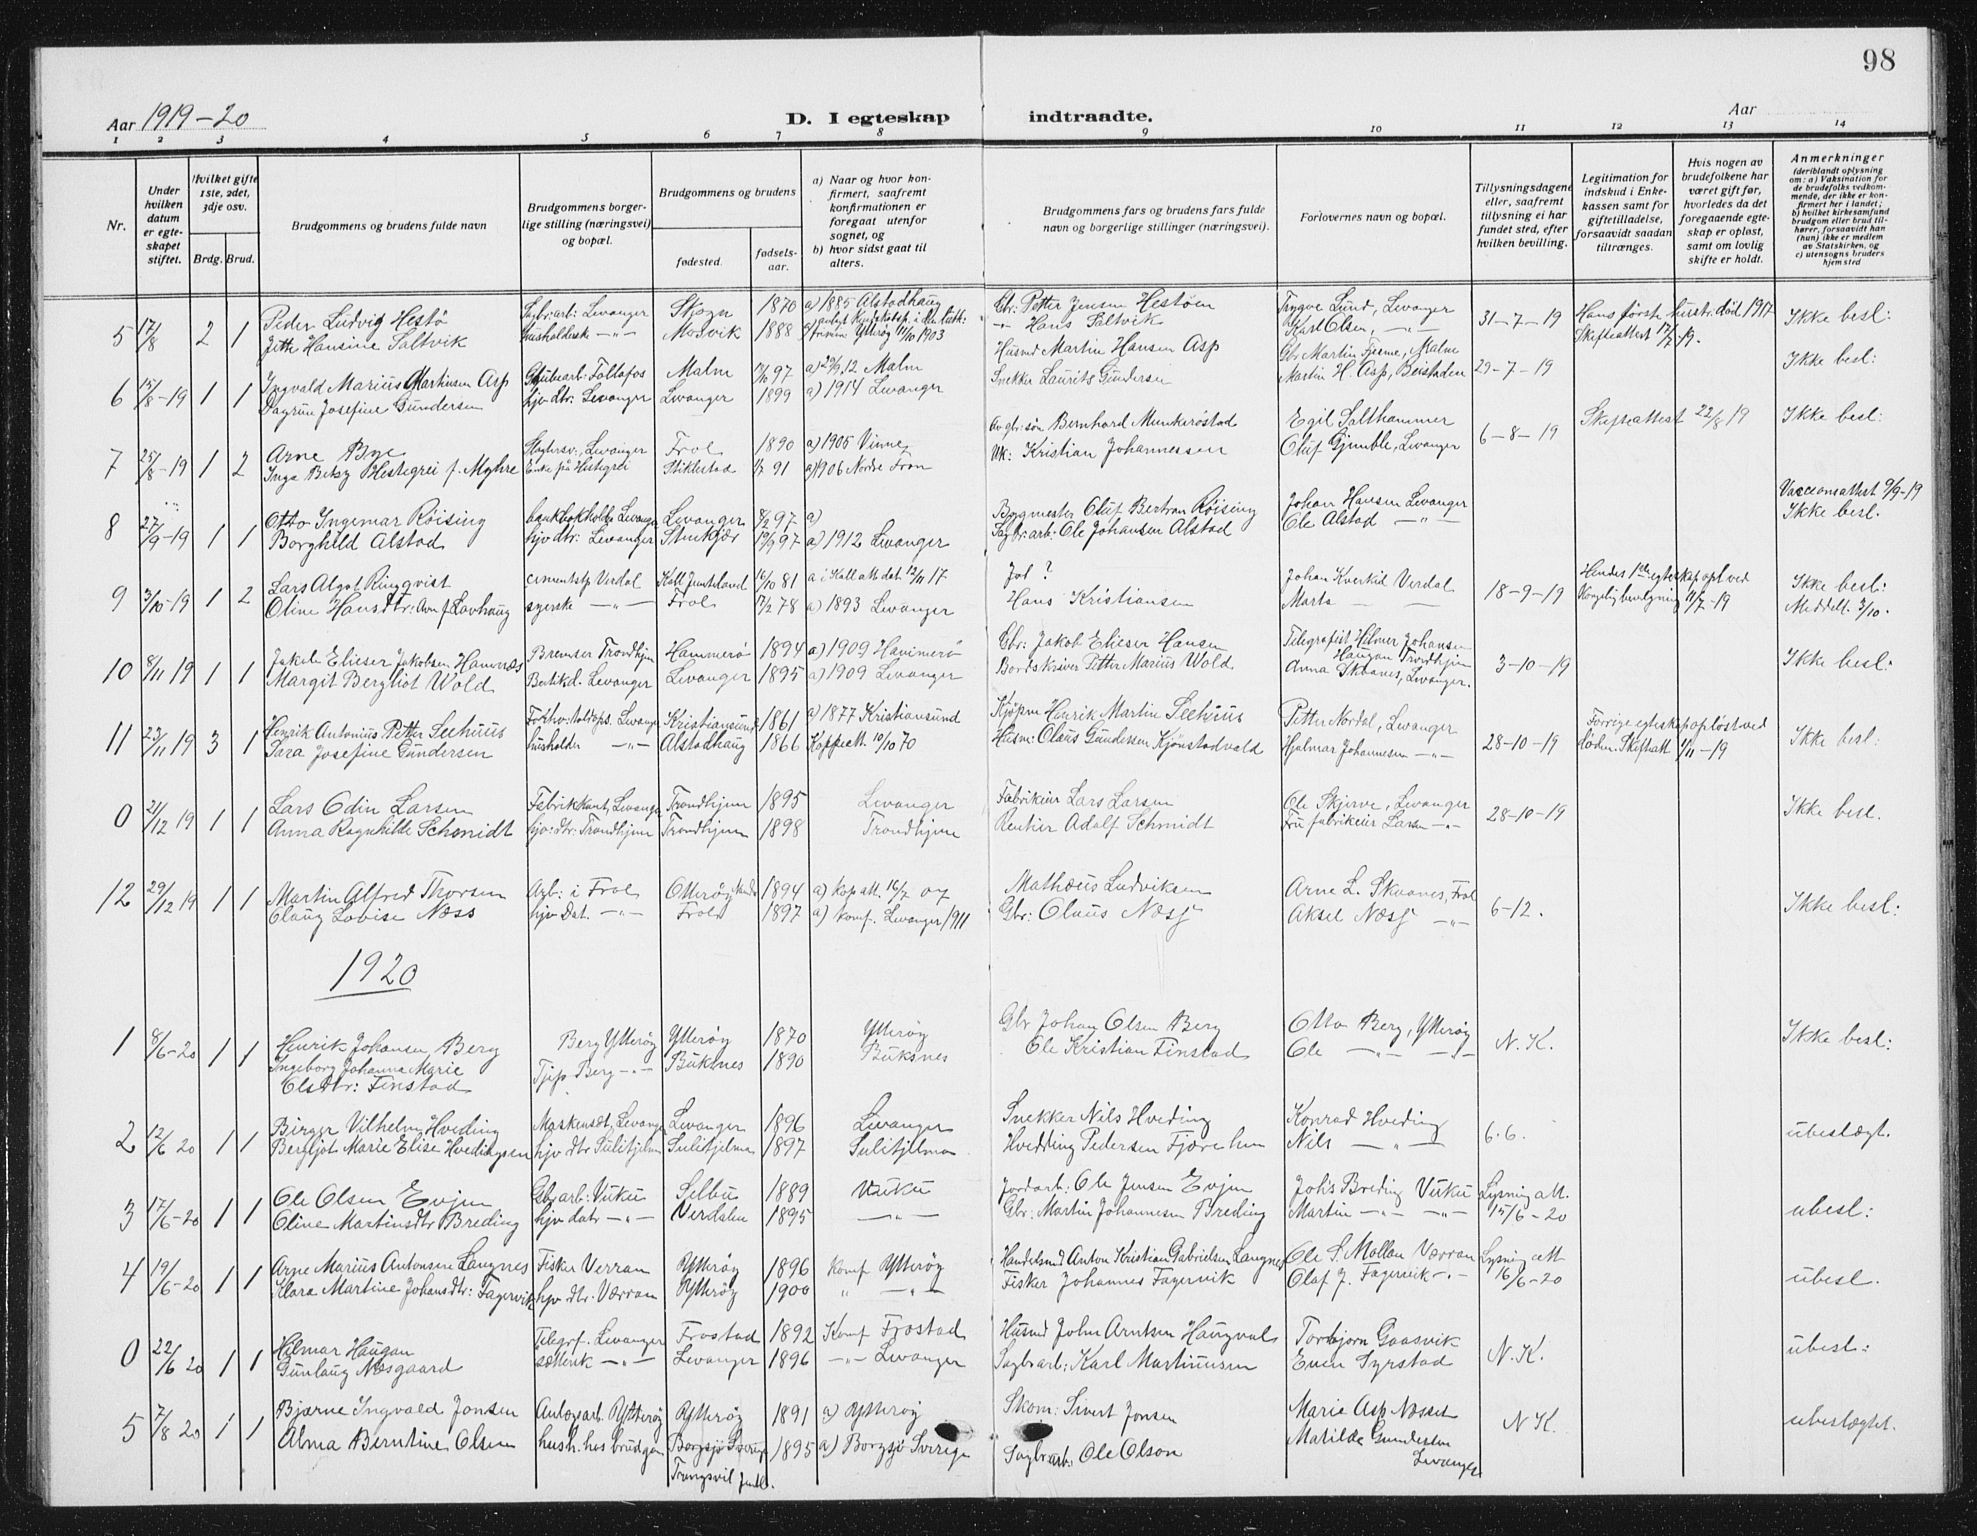 98
Aar 1919-20
D. I egteskap indtraadte.
Aar
1 2 3 4 5 6 7 8 9 10 11 12 13 14
Nr.
Under hvilken datum er egteskapet stiftet.
Hvilket gifte 1ste, 2det, 3dje osv.
Brdg. Brud.
Brudgommens og brudens fulde navn
Brudgommens borgerlige stilling (næringsvei) og bopæl.
Brudgommens og brudens
fødested.
fødselsaar.
a) Naar og hvor konfirmert, saafremt konfirmationen er foregaat utenfor sognet, og
b) hvor sidst gaat til alters.
Brudgommens fars og brudens fars fulde navn og borgerlige stillinger (næringsvei).
Forlovernes navn og bopæl.
Tillysningsdagene eller, saafremt tillysning ei har fundet sted, efter hvilken bevilling.
Legitimation for indskud i Enkekassen samt for giftetilladelse, forsaavidt saadan tiltrænges.
Hvis nogen av brudefolkene har været gift før, hvorledes da det foregaaende egteskap er opløst, samt om lovlig skifte er holdt.
Anmerkninger (deriblandt oplysning om: a) Vaksination for de brudefolks vedkommende, der ikke er konfirmert her i landet; b) hvilket kirkesamfund brudgom eller brud tilhører, forsaavidt han (hun) ikke er medlem av Statskirken, og c) utensogns bruders hjemsted
5 17/8 2 1 Peder Ludvig Hestø Sagbr: arb: Levanger Skogn 1870 a) 1885 Alstadhaug Gbr: Petter Jensen Hestøen Trygve Lund, Levanger 31-7-19 Hans første hustr. død 1917 Ikke besl:
Jette Hansine Saltvik Mosvik 1888 Ytterøy 11/10 1903 -"- Hans Saltvik Karl Olsen, -"- Skifteattest 17/7-19.
6 15/8-19 1 1 Ingvald Marius Martinsen Asp Follafos Malm 97 12 Malm Husmd Martin Hansen Asp Gbr Martin Fjesme, Malm 29-7-19 Ikke besl:
Dagrun Josefine Gundersen hjv dtr: Levanger Levanger 1899 a) 1914 Levanger Snekker Laurits Gundersen Martin H. Asp, Beistaden
7 25/8-19 1 2 Arne Bye Levanger Frol 1890 a) 1905 Vinne Bernhard Munkerøstad Egil Salthammer 6-8-19 Skifteattest 22/8 19 Ikke besl:
Inga Betsy Hestegrei f. Myhre Enke på Hestegrei Stiklestad 91 a) 1906 Nordre Fron Kristian Johannessen Oluf Gjemble, Levanger
8 27/9-19 1 1 Otto Ingemar Röising Levanger Levanger 8/2 97 a) Bygmester Oluf Bertran Röising Johan Hansen Levanger Vaccionsattest 9/9-19
Borghild Alstad hjv dtr: Levanger Stenkjær 97 a) 1912 Levanger Sagbr: arb: Ole Johansen Alstad Ole Alstad -"- Ikke besl.
9 3/10-19 1 2 Lars Algot Ringqvist Verdal Kall Jemteland 16/10 81 a i Kall att dat 12/11 17 Jol ? Johan Kverkild Verdal 18-9-19 Hendes 1ste egteskap opl ved Ikke besl:
Oline Hansdtr: syerske -"- Frol 17/2 78 a) 1893 Levanger Hans Kristiansen Marta Kongelig bevilgning 11/7-19 Meddelt 3/10.
10 8/11 19 1 1 Jakob Elieser Jakobsen Hamnæs Bremser Trondhjem Hammerö 1894 a) 1909 Hammerö Gbr: Jakob Elieser Hansen Telegrafist Hilmar Johansen Haugan Trondhjem 3-10-19 Ikke besl:
Margit Bergliot Wold Butikd. Levanger Levanger 1895 a) 1909 Levanger Petter Marius Wold Anna Skaanes, Levanger.
11 22/11 19 3 1 Henrik Antonius Petter Seehuus Levanger Kristiansund 1861 a) 1877 Kristiansund Kjöpm Henrik Martin Seehuus Petter Nordal, Levanger 28-10-19 Forrige egteskap opløst ved Ikke besl:
Sara Josefine Gundersen husholder -"- Alstadhaug 1866 Koppeatt. 10/10 70 Husm: Claus Gundersen Kjönstadvald Hjalmar Johannesen -"- døden. Skifteatt 1/11-19
0 21/12 19 1 1 Lars Odin Larsen Levanger Trondhjem 1895 Levanger Fabrikeier Lars Larsen Ole Skjerve, Levanger 28-10-19 Ikke besl.
Anna Ragnhilde Schmidt hjv: dtr: Trondhjem Trondhjem 1898 Trondhjem Rentier Adolf Schmidt Fru fabrikeier Larsen -"-
12 29/12 19 1 1 Martin Alfred Thorsen i Frol Otterøy 1894 a) Kop att. 16/7 07 Mathæus Ludviksen Arne L. Skaanes, Frol 6-12. Ikke besl:
Claug Lovise Næss hjv Dat. -"- Frol 1897 a) Konf. Levanger 1911 Gbr: Claus Næss Aksel Næss -"-
1920
1 8/6-20 1 1 Henrik Johansen Berg Berg Ytterøy Ytterøy 1870 Ytterøy Gbr Johan Olsen Berg Otto Berg, Ytterøy N. K. Ikke besl:
Ingeborg Johanna Marie Berg -"- Buksnes 1890 Buksnes Ole Kristian Finstad Ole -"- -"-
Olsdtr: Finstad
2 12/6 20 1 1 Birger Vilhelm Hveding Levanger Levanger 1896 Levanger Snekker Nils Hveding Konrad Hveding 6.6. ubeslægt.
Bergljot Marie Elise Hvedingsen hjv dtr Sulitjelma Sulitjelma 1897 Sulitjelma Hvedding Pedersen Nils -"-
3 17/6-20 1 1 Ole Olsen Evjen Vuku Selbu 1889 Vuku Jordarb: Ole Jensen Evjen Johs Breding Vuku Lysning att. ubesl:
Oline Martinsdtr Breding hjv datr -"- Verdalen 1895 -"- Gbr: Martin Johannesen Breding Martin -"- -"- 15/6-20
4 19/6-20 1 1 Arne Marius Antonsen Langnes Fisker Verran Ytterøy 1896 Konf Ytterøy Anton Kristian Gabrielsen Langnes Ole S. Mollan Værran Lysning att ubesl.
Klara Martine Johansdtr: Fagervik hjv dtr: Værran Ytterøy 1900 " -"- Fisker Johannes Fagervik Olaf J. Fagervik -"- 16/6-20
0 22/6 20 1 1 Hilmar Haugan Telegrf. Levanger Frostad 1892 Konf Frostad Husmd John Arntsen Haugvals Torbjørn Gaasvik N. K. ubesl:
Gunlaug Næsgaard -"- Levanger 1896 -"- Levanger Sagbr arb: Karl Martinusen Syrstad
5 7/8 20 1 1 Bjarne Ingvald Jonsen Ytterøy Ytterøy 1891 a) Ytterøy Skom: Sivert Jonsen Marie Asp Næsset N K. ubeslægtet.
Alma Berntine Olsen hush. hos brudgom Borgsjø Sverige 1895 a) Borgsjø Sverige Sagbr arb: Ole Olson Matilde Gundersen
Levanger